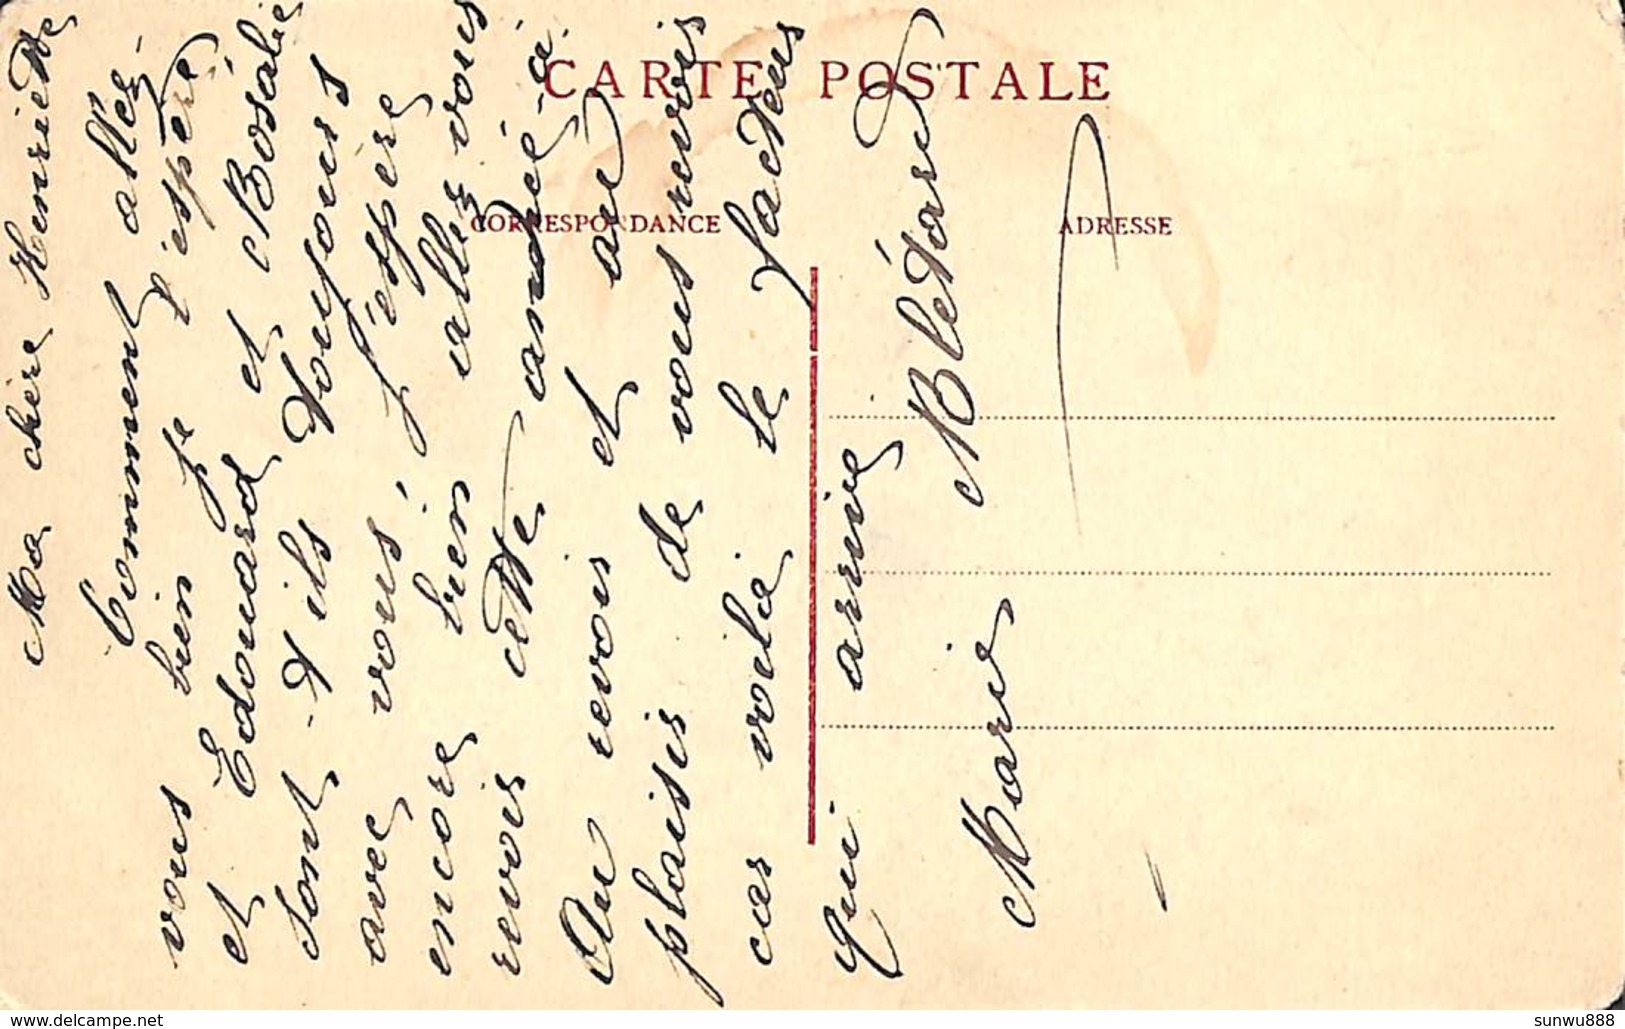 CARTE POSTALE
CORRESPONDANCE
ADRESSE
Ma chère Henriette
Comment allez-
vous bien je l'espère
et Edouard et Rosalie
sont-ils toujours
avec vous j'espère
encore bien allez vous
revoir cette année-ci
Au revoir et au
plaisir de vous revoir
car voilà le facteur
qui arrive
Marie Blétard
www.delcampe.net
sunwu888